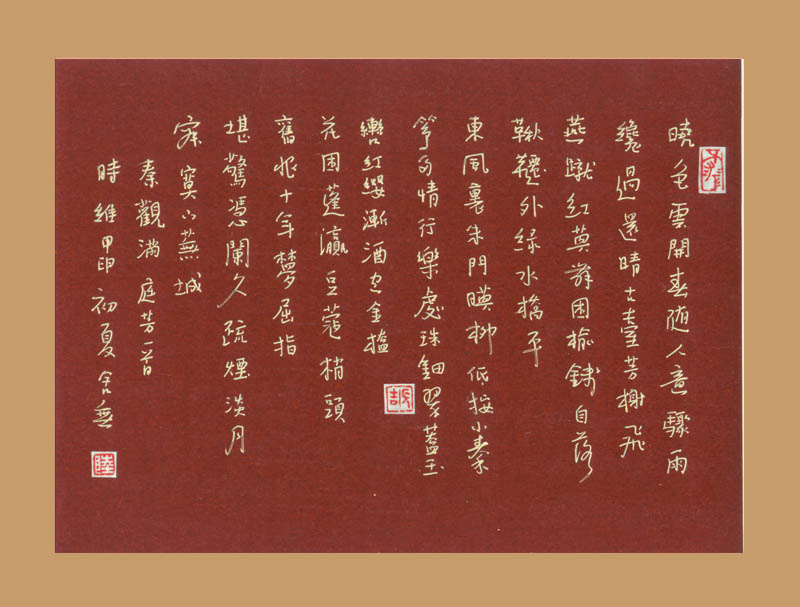 曉色雲開春隨人意驟雨
纔過還晴古臺芳榭飛
燕蹴紅英舞困榆錢自落
鞦韆外綠水橋平
東風裏朱門暎柳低按小秦
箏多情行樂處珠鈿翠蓋玉
轡紅纓漸酒空金榼
花困蓬瀛豆蔻梢頭
舊恨十年夢屈指
堪驚憑闌久疏煙淡月
寂寞下蕪城
秦觀滿庭芳一首
時維甲申初夏